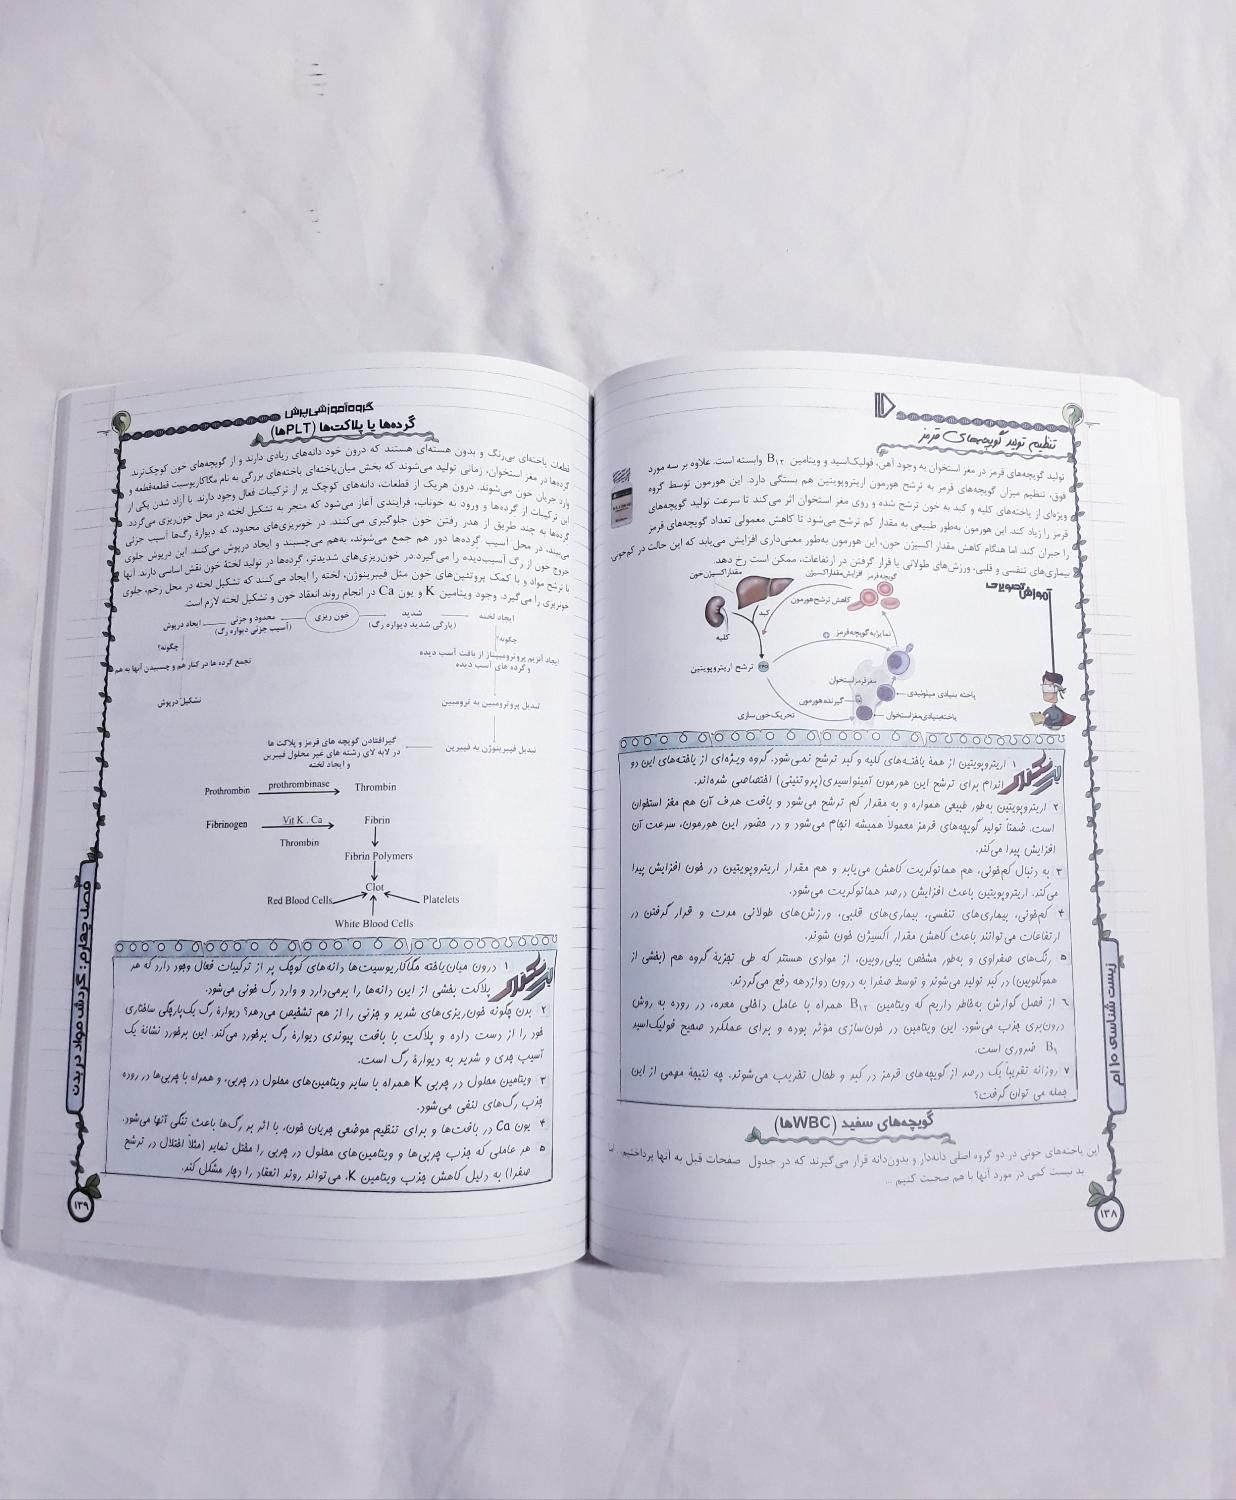 تنظیم تولید گویچه‌های قرمز
تولید گویچه‌های قرمز در مغز استخوان به وجود آهن، فولیک‌اسید و ویتامین B۱۲ وابسته است. علاوه بر سه مورد
فوق، تنظیم میزان گویچه‌های قرمز به ترشح هورمون اریتروپویتین هم بستگی دارد. این هورمون توسط گروه
ویژه‌ای از یاخته‌های کلیه و کبد به خون ترشح شده و روی مغز استخوان اثر می‌کند تا سرعت تولید گویچه‌های
قرمز را زیاد کند. این هورمون به‌طور طبیعی به مقدار کم ترشح می‌شود تا کاهش معمولی تعداد گویچه‌های قرمز
را جبران کند. اما هنگام کاهش مقدار اکسیژن خون، این هورمون به‌طور معنی‌داری افزایش می‌یابد که این حالت در کم‌خونی
بیماری‌های تنفسی و قلبی، ورزش‌های طولانی یا قرار گرفتن در ارتفاعات، ممکن است رخ دهد.
آموزش تصویری
گویچه قرمز
افزایش مقدار اکسیژن
مقدار اکسیژن خون
کاهش ترشح هورمون
کبد
کلیه
تمایز به گویچه قرمز
ترشح اریتروپویتین
مغز قرمز استخوان
یاخته بنیادی میلوئیدی
گیرنده هورمون
یاخته بنیادی مغز استخوان
تحریک خون سازی
۱ اریتروپویتین از همهٔ یافته‌های کلیه و کبد ترشح نمی‌شود. گروه ویژه‌ای از یافته‌های این دو
اندام برای ترشح این هورمون آمینواسیدی(پروتئینی) اختصاصی شده‌اند.
۲ اریتروپویتین به‌طور طبیعی همواره و به مقدار کم ترشح می‌شود و بافت هدف آن هم مغز استخوان
است. ضمناً تولید گویچه‌های قرمز معمولاً همیشه انجام می‌شود و در حضور این هورمون، سرعت آن
افزایش پیدا می‌کند.
۳ به دنبال کم‌خونی، هم هماتوکریت کاهش می‌یابد و هم مقدار اریتروپویتین در خون افزایش پیدا
می‌کند. اریتروپویتین باعث افزایش درصد هماتوکریت می‌شود.
۴ کم‌خونی، بیماری‌های تنفسی، بیماری‌های قلبی، ورزش‌های طولانی مدت و قرار گرفتن در
ارتفاعات می‌توانند باعث کاهش مقدار اکسیژن خون شوند.
۵ رنگ‌های صفراوی و به‌طور مشخص بیلی‌روبین، از موادی هستند که طی تجزیهٔ گروه هم (بخشی از
هموگلوبین) در کبد تولید می‌شوند و توسط صفرا به درون دوازدهه دفع می‌گردند.
۶ از فصل گوارش به‌خاطر داریم که ویتامین B۱۲ همراه با عامل داخلی معده، در روده به روش
درون‌بری جذب می‌شود. این ویتامین در خون‌سازی مؤثر بوده و برای عملکرد صحیح فولیک‌اسید
B۹ ضروری است.
۷ روزانه تقریباً یک درصد از گویچه‌های قرمز در کبد و طحال تخریب می‌شوند. چه نتیجهٔ مهمی از این
جمله می توان گرفت؟
گویچه‌های سفید (WBCها)
این یاخته‌های خونی در دو گروه اصلی دانه‌دار و بدون‌دانه قرار می‌گیرند که در جدول صفحات قبل به آنها پرداختیم. اما
بد نیست کمی در مورد آنها با هم صحبت کنیم ...
زیست شناسی ۱۰ ام
۱۳۸
گروه آموزشی پرش
گرده‌ها یا پلاکت‌ها (PLTها)
قطعات یاخته‌ای بی‌رنگ و بدون هسته‌ای هستند که درون خود دانه‌های زیادی دارند و از گویچه‌های خون کوچک‌ترند
گرده‌ها در مغز استخوان، زمانی تولید می‌شوند که بخش میان‌یاخته‌ای یاخته‌های بزرگی به نام مگاکاریوسیت قطعه‌قطعه و
وارد جریان خون می‌شوند. درون هریک از قطعات، دانه‌های کوچک پر از ترکیبات فعال وجود دارند. با آزاد شدن یکی از
این ترکیبات از گرده‌ها و ورود به خوناب، فرایندی آغاز می‌شود که منجر به تشکیل لخته در محل خون‌ریزی می‌گردد.
گرده‌ها به چند طریق از هدر رفتن خون جلوگیری می‌کنند. در خونریزی‌های محدود، که دیوارهٔ رگ‌ها آسیب جزئی
می‌بیند، در محل آسیب گرده‌ها دور هم جمع می‌شوند، به‌هم می‌چسبند و ایجاد درپوش می‌کنند. این درپوش جلوی
خروج خون از رگ آسیب‌دیده را می‌گیرد. در خون‌ریزی‌های شدیدتر، گرده‌ها در تولید لختهٔ خون نقش اساسی دارند. آنها
با ترشح مواد و با کمک پروتئین‌های خون مثل فیبرینوژن، لخته را ایجاد می‌کنند که تشکیل لخته در محل زخم، جلوی
خونریزی را می‌گیرد. وجود ویتامین K و یون Ca در انجام روند انعقاد خون و تشکیل لخته لازم است.
ایجاد لخته
شدید
(پارگی شدید دیواره رگ)
خون ریزی
محدود و جزئی
(آسیب جزئی دیواره رگ)
ایجاد درپوش
چگونه؟
چگونه؟
ایجاد آنزیم پروترومبیناز از بافت آسیب دیده
و گرده های آسیب دیده
تجمع گرده ها در کنار هم و چسبیدن آنها به هم
تبدیل پروترومبین به ترومبین
تشکیل درپوش
تبدیل فیبرینوژن به فیبرین
گیرافتادن گویچه های قرمز و پلاکت ها
در لابه لای رشته های غیر محلول فیبرین
و ایجاد لخته
Prothrombin prothrombinase Thrombin
Fibrinogen Vit K . Ca Fibrin
Thrombin
Fibrin Polymers
Clot
Red Blood Cells Platelets
White Blood Cells
۱ درون میان‌یاخته مگاکاریوسیت‌ها دانه‌های کوچک پر از ترکیبات فعال وجود دارد که هر
پلاکت بخشی از این دانه‌ها را برمی‌دارد و وارد رگ خونی می‌شود.
۲ بدن چگونه خون‌ریزی‌های شدید و جزئی را از هم تشخیص می‌دهد؟ دیوارهٔ رگ یک‌پارچگی ساختاری
خود را از دست داده و پلاکت با بافت پیوندی دیوارهٔ رگ برخورد می‌کند. این برخورد نشانهٔ یک
آسیب جدی و شدید به دیوارهٔ رگ است.
۳ ویتامین محلول در چربی K همراه با سایر ویتامین‌های محلول در چربی، و همراه با چربی‌ها در روده
جذب رگ‌های لنفی می‌شود.
۴ یون Ca در بافت‌ها و برای تنظیم موضعی جریان خون، با اثر بر رگ‌ها باعث تنگی آنها می‌شود.
۵ هر عاملی که جذب چربی‌ها و ویتامین‌های محلول در چربی را مختل نماید (مثلاً اختلال در ترشح
صفرا) به دلیل کاهش جذب ویتامین K، می‌تواند روند انعقاد را دچار مشکل کند.
فصل چهارم : گردش مواد در بدن
۱۳۹